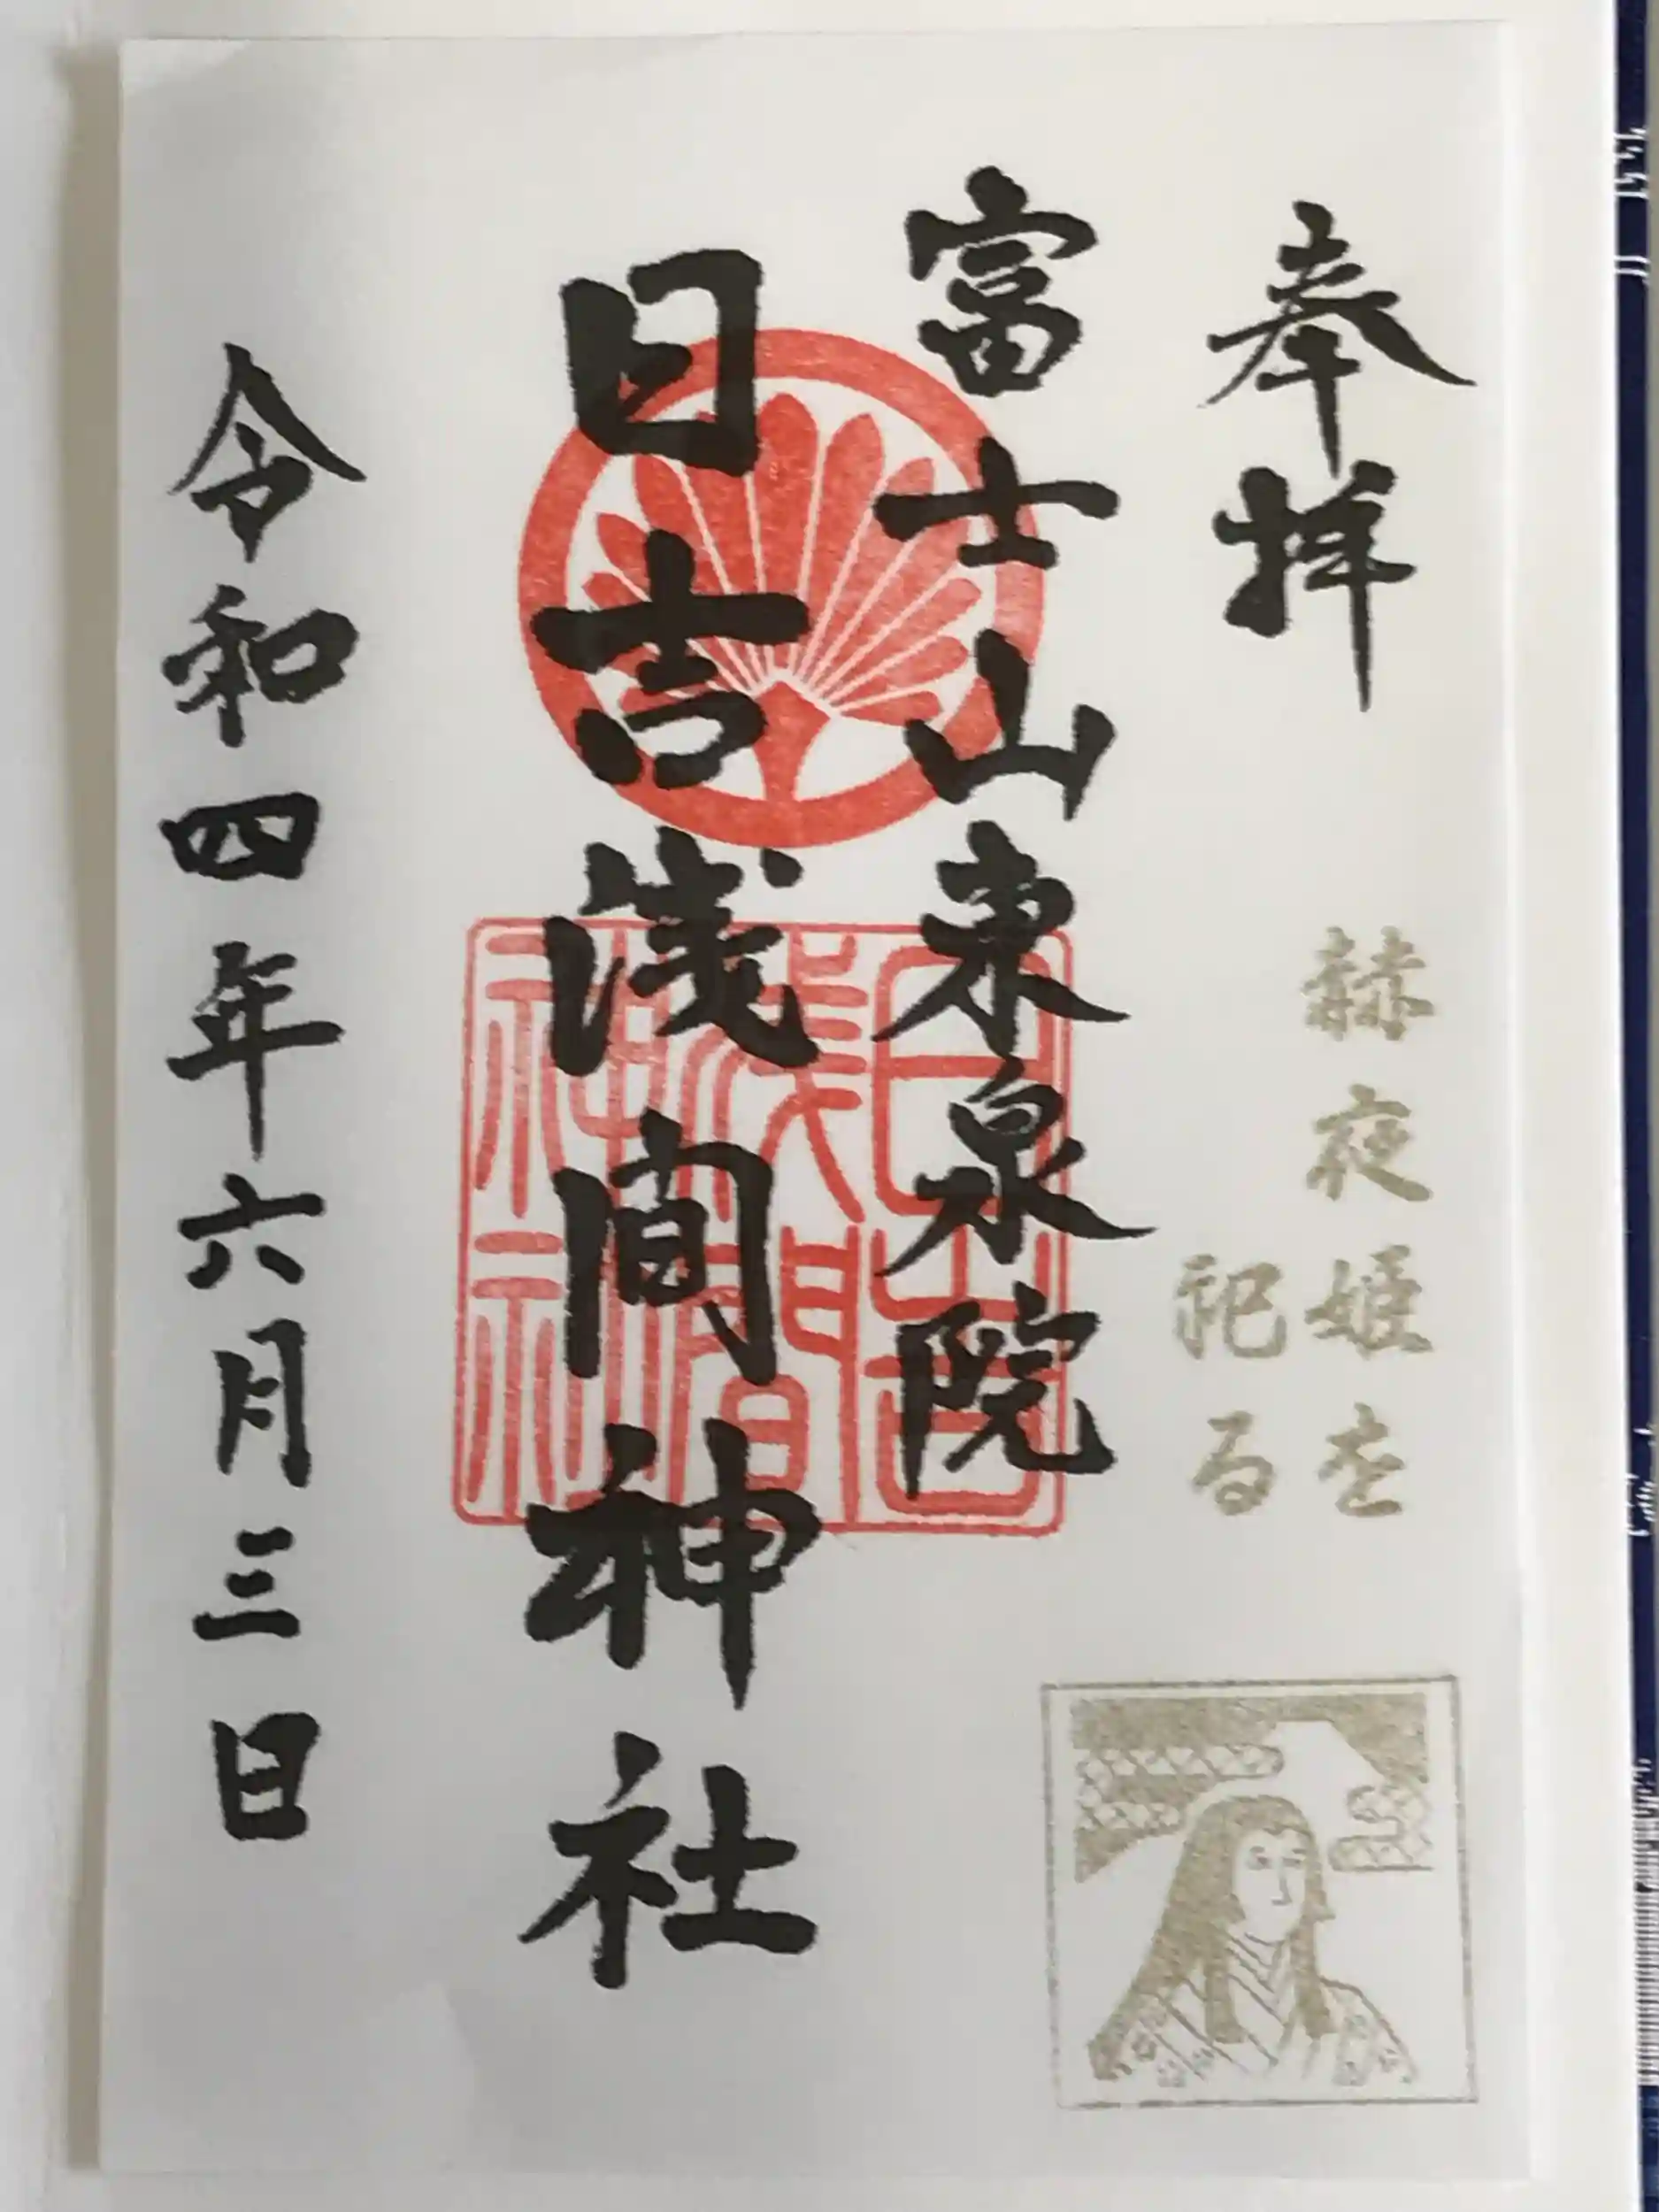 奉拝
赫夜姫を
祀る
富士山東泉院
日吉浅間神社
日吉
浅間
神社
令和四年六月三日